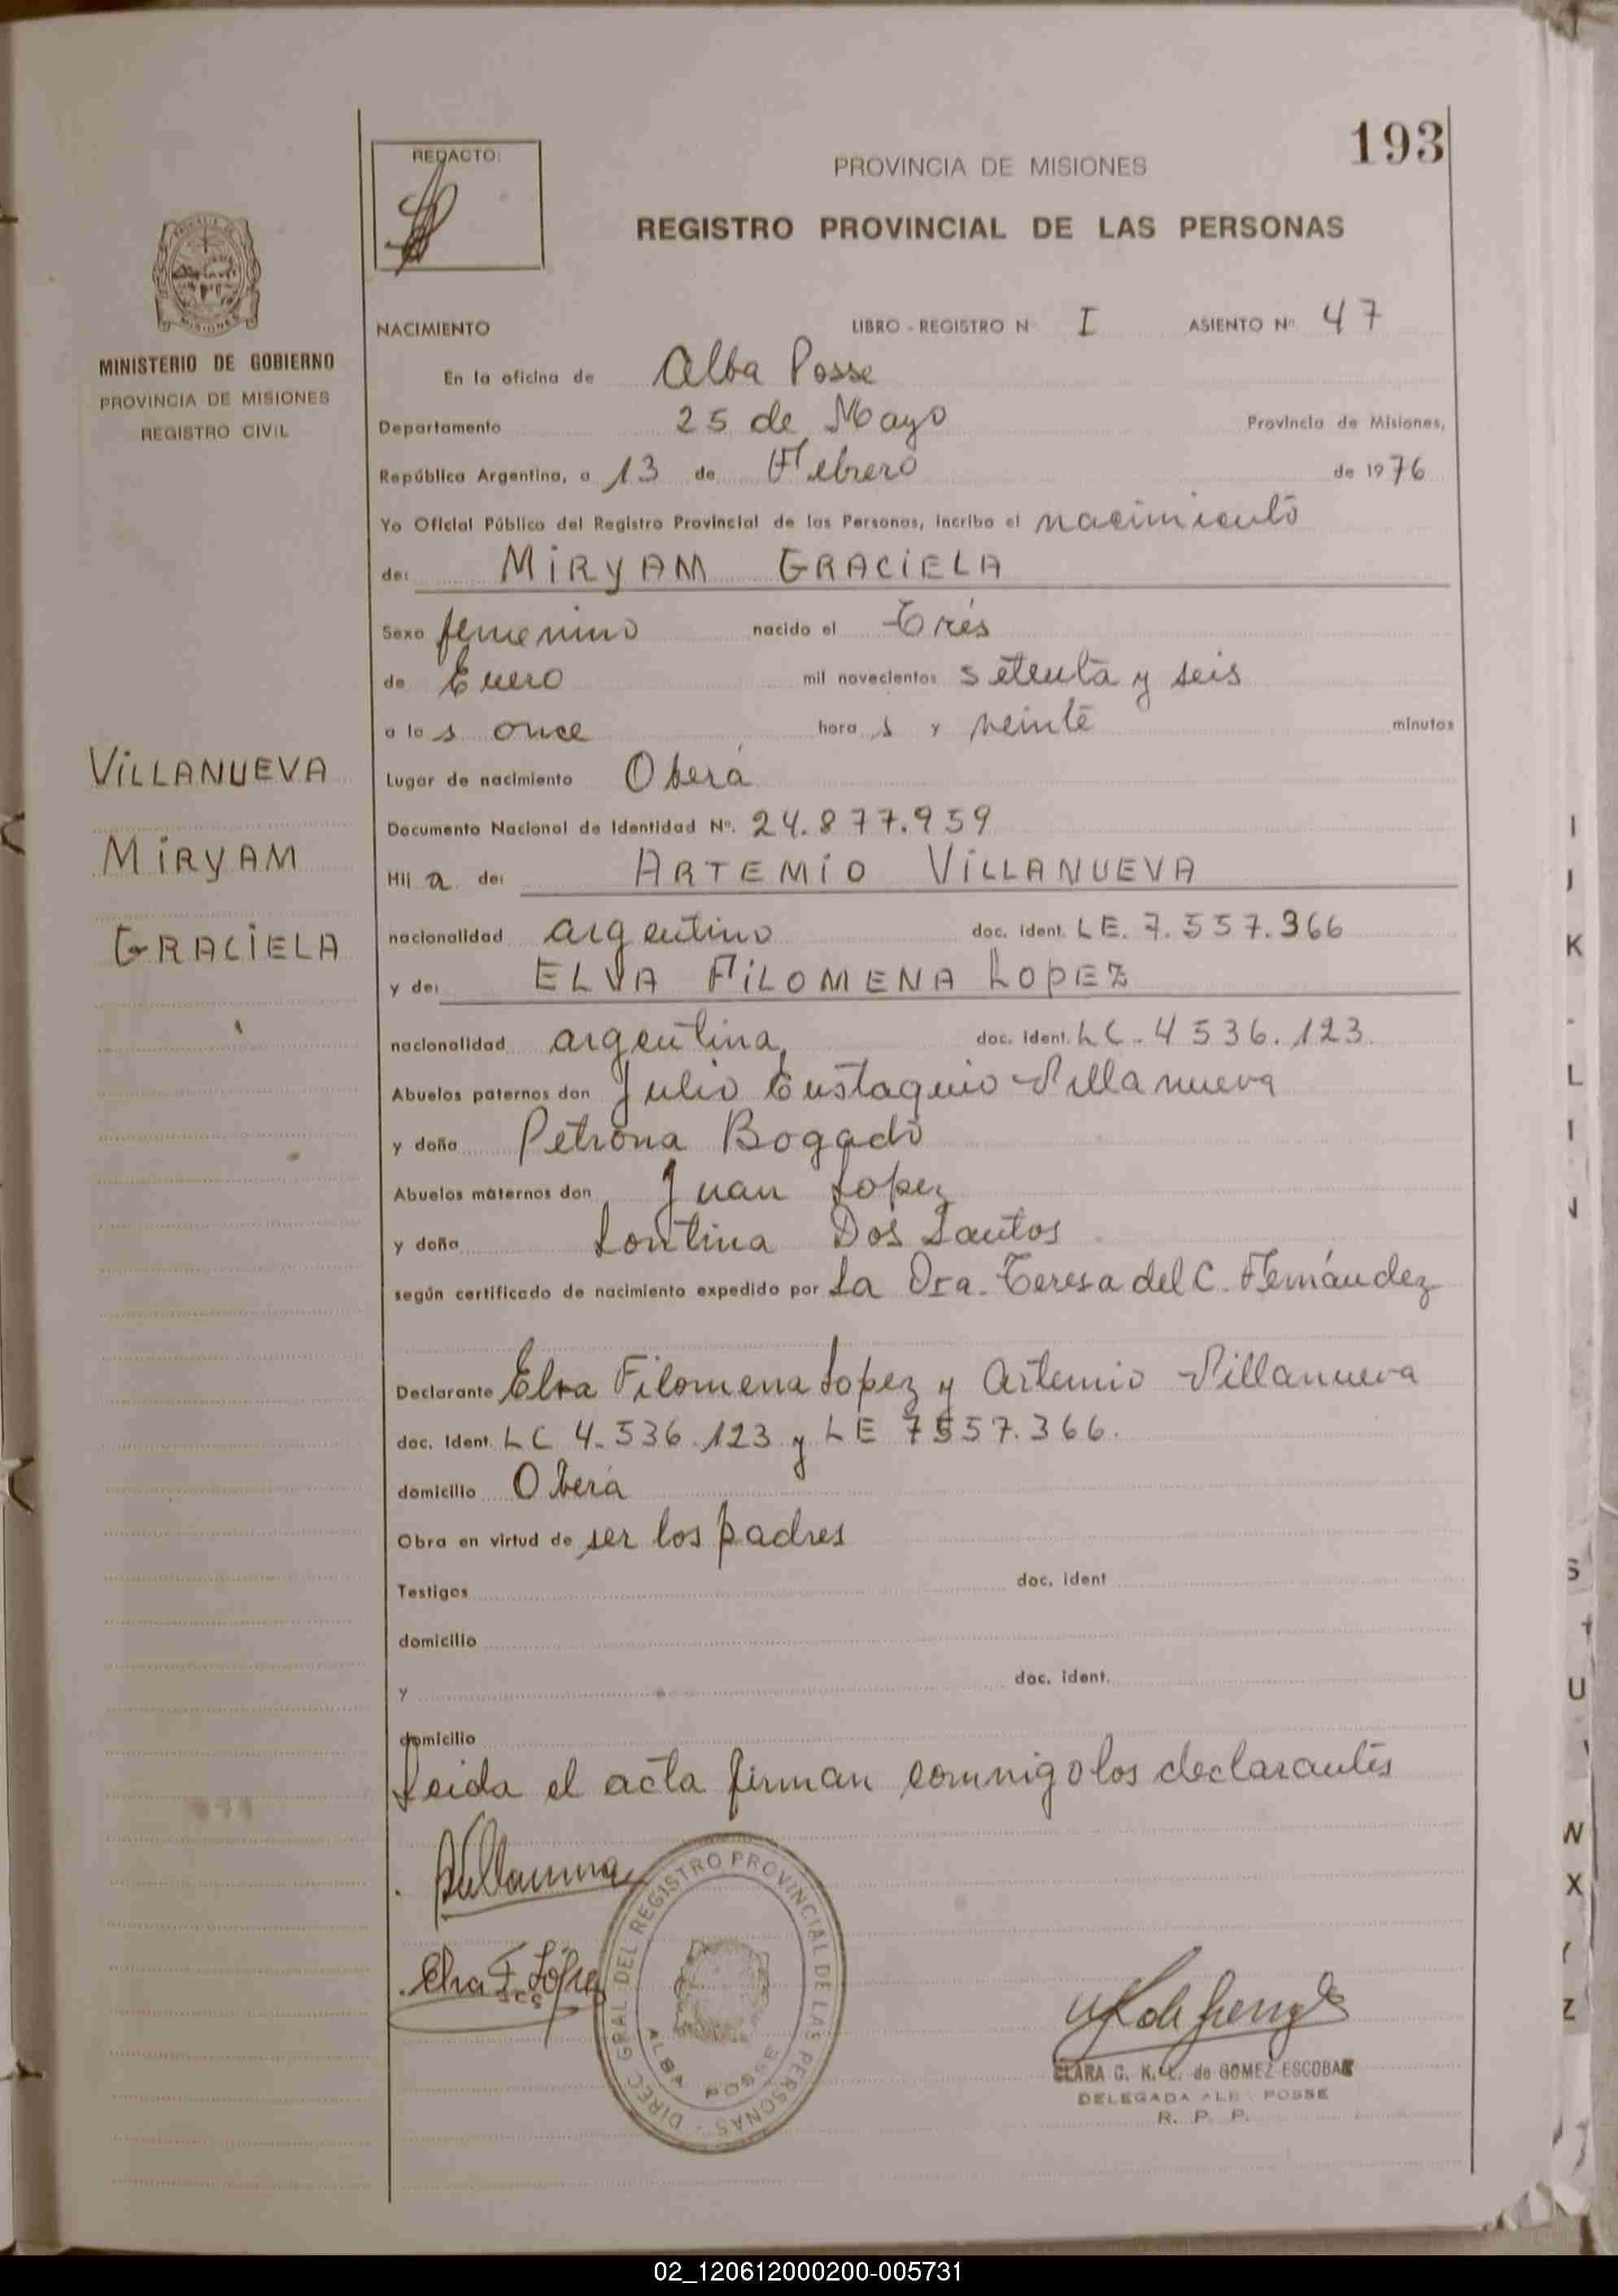 193
REDACTO:
PROVINCIA DE MISIONES
REGISTRO PROVINCIAL DE LAS PERSONAS
MINISTERIO DE GOBIERNO
PROVINCIA DE MISIONES
REGISTRO CIVIL
NACIMIENTO LIBRO - REGISTRO N I ASIENTO Nº 47
En la oficina de Alba Posse
Departamento 25 de Mayo Provincia de Misiones,
República Argentina, a 13 de Febrero de 1976
Yo Oficial Público del Registro Provincial de las Personas, incribo el nacimiento
de: MiRyAM GRACiELA
Sexo femenino nacido el Trés
de Enero mil novecientos setenta y seis
a las once horas y veinte minutos
Lugar de nacimiento Oberá
Documento Nacional de Identidad Nº. 24.877.959
Hija de: ARTEMiO ViLLANUEVA
nacionalidad argentino doc. ident. LE. 7.557.366
y de: ELVA FiLOMENA LOPEZ
nacionalidad argentina, doc. ident. LC. 4536.123
Abuelos paternos don Julio Eustaquio Villanueva
y doña Petrona Bogado
Abuelos maternos don Juan Lopez
y doña Lontina Dos Santos
según certificado de nacimiento expedido por La Dra. Teresa del C. Fernández
Declarante Elva Filomena Lopez y Artemio Villanueva
doc. Ident. LC 4.536.123 y LE 7557.366.
domicilio Oberá
Obra en virtud de ser los padres
Testigos doc. ident
domicilio
y doc. ident.
domicilio
Leida el acta firman conmigo los declarantes
ViLLANUEVA
MiRyAM
GRACiELA
Villanueva
Elva F. López
DIREC. GRAL. DEL REGISTRO PROVINCIAL DE LAS PERSONAS
ALBA POSSE
CLARA C. K. L. de GOMEZ ESCOBAR
DELEGADA ALB POSSE
R. P. P.
I
J
K
L
S
U
W
X
Y
Z
02_120612000200-005731